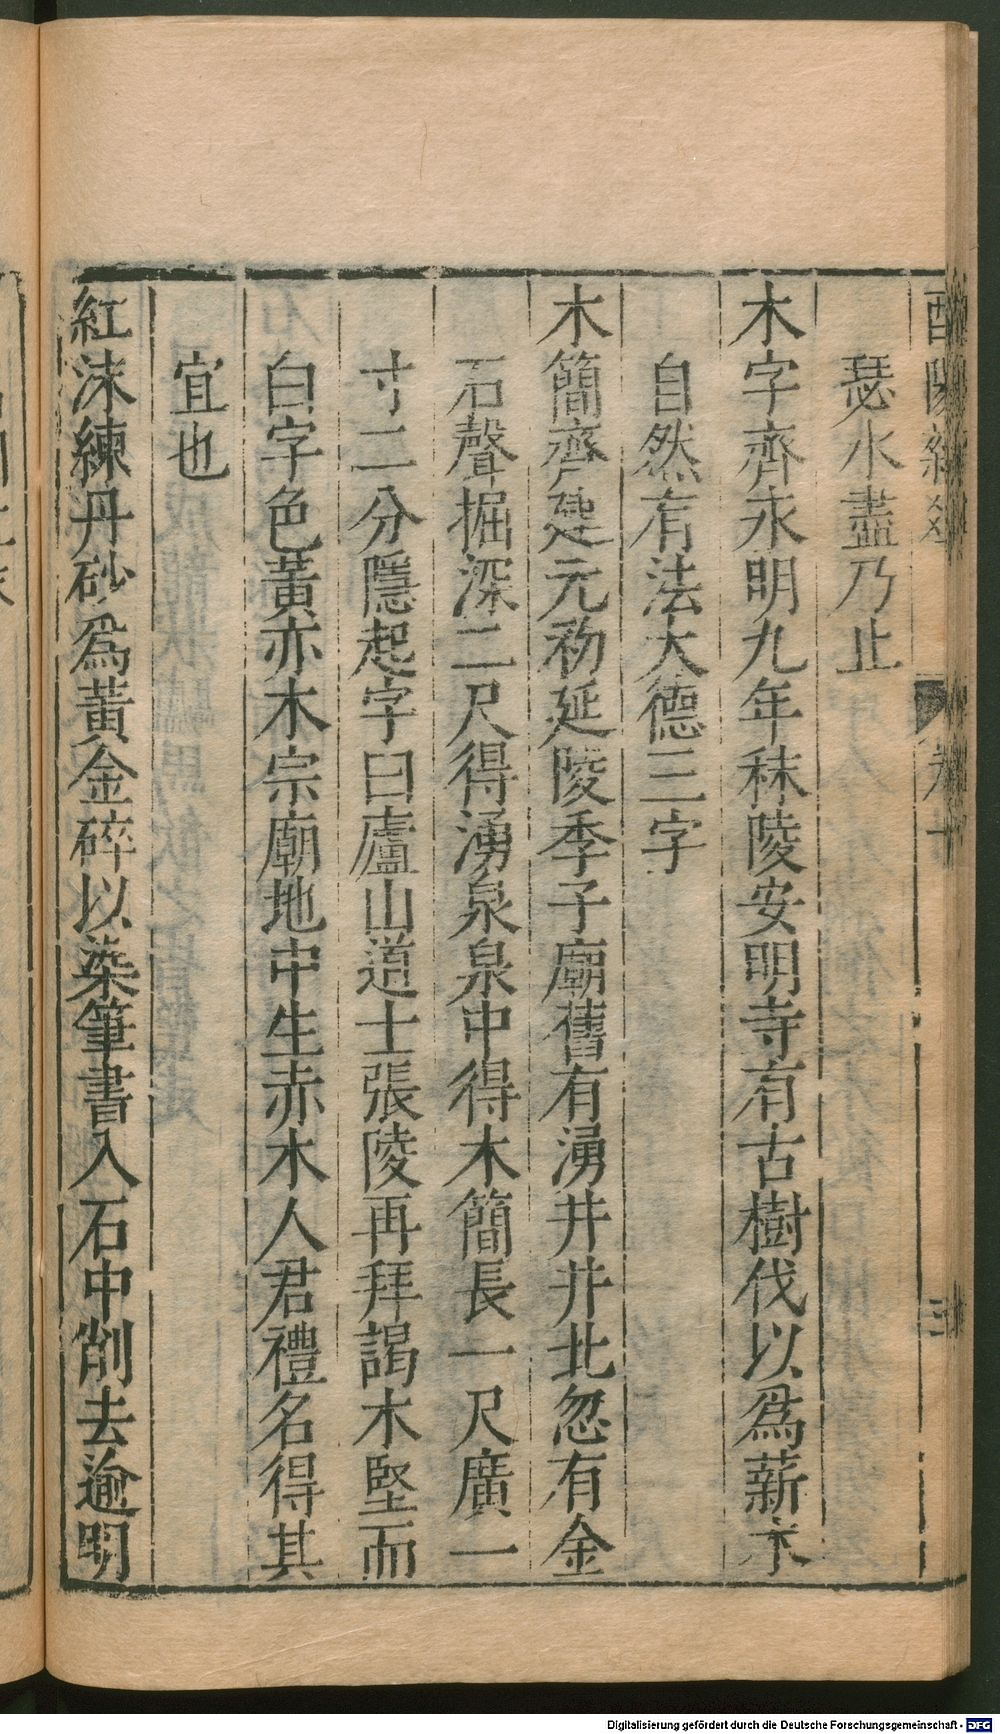 瑟水盡乃止
木字齊永明九年秣陵安明寺有古樹伐以爲薪木
自然有法大德三字
木簡齊建元初延陵季子廟舊有湧井井北忽有金
石聲掘深二尺得湧泉泉中得木簡長一尺廣一
寸二分隱起字曰廬山道士張陵再拜謁木堅而
白字色黃亦木宗廟地中生赤木人君禮名得其
宜也
紅沫練丹砂爲黃金碎以染筆書入石中削去逾明
Digitalisierung gefördert durch die Deutsche Forschungsgemeinschaft - DFG